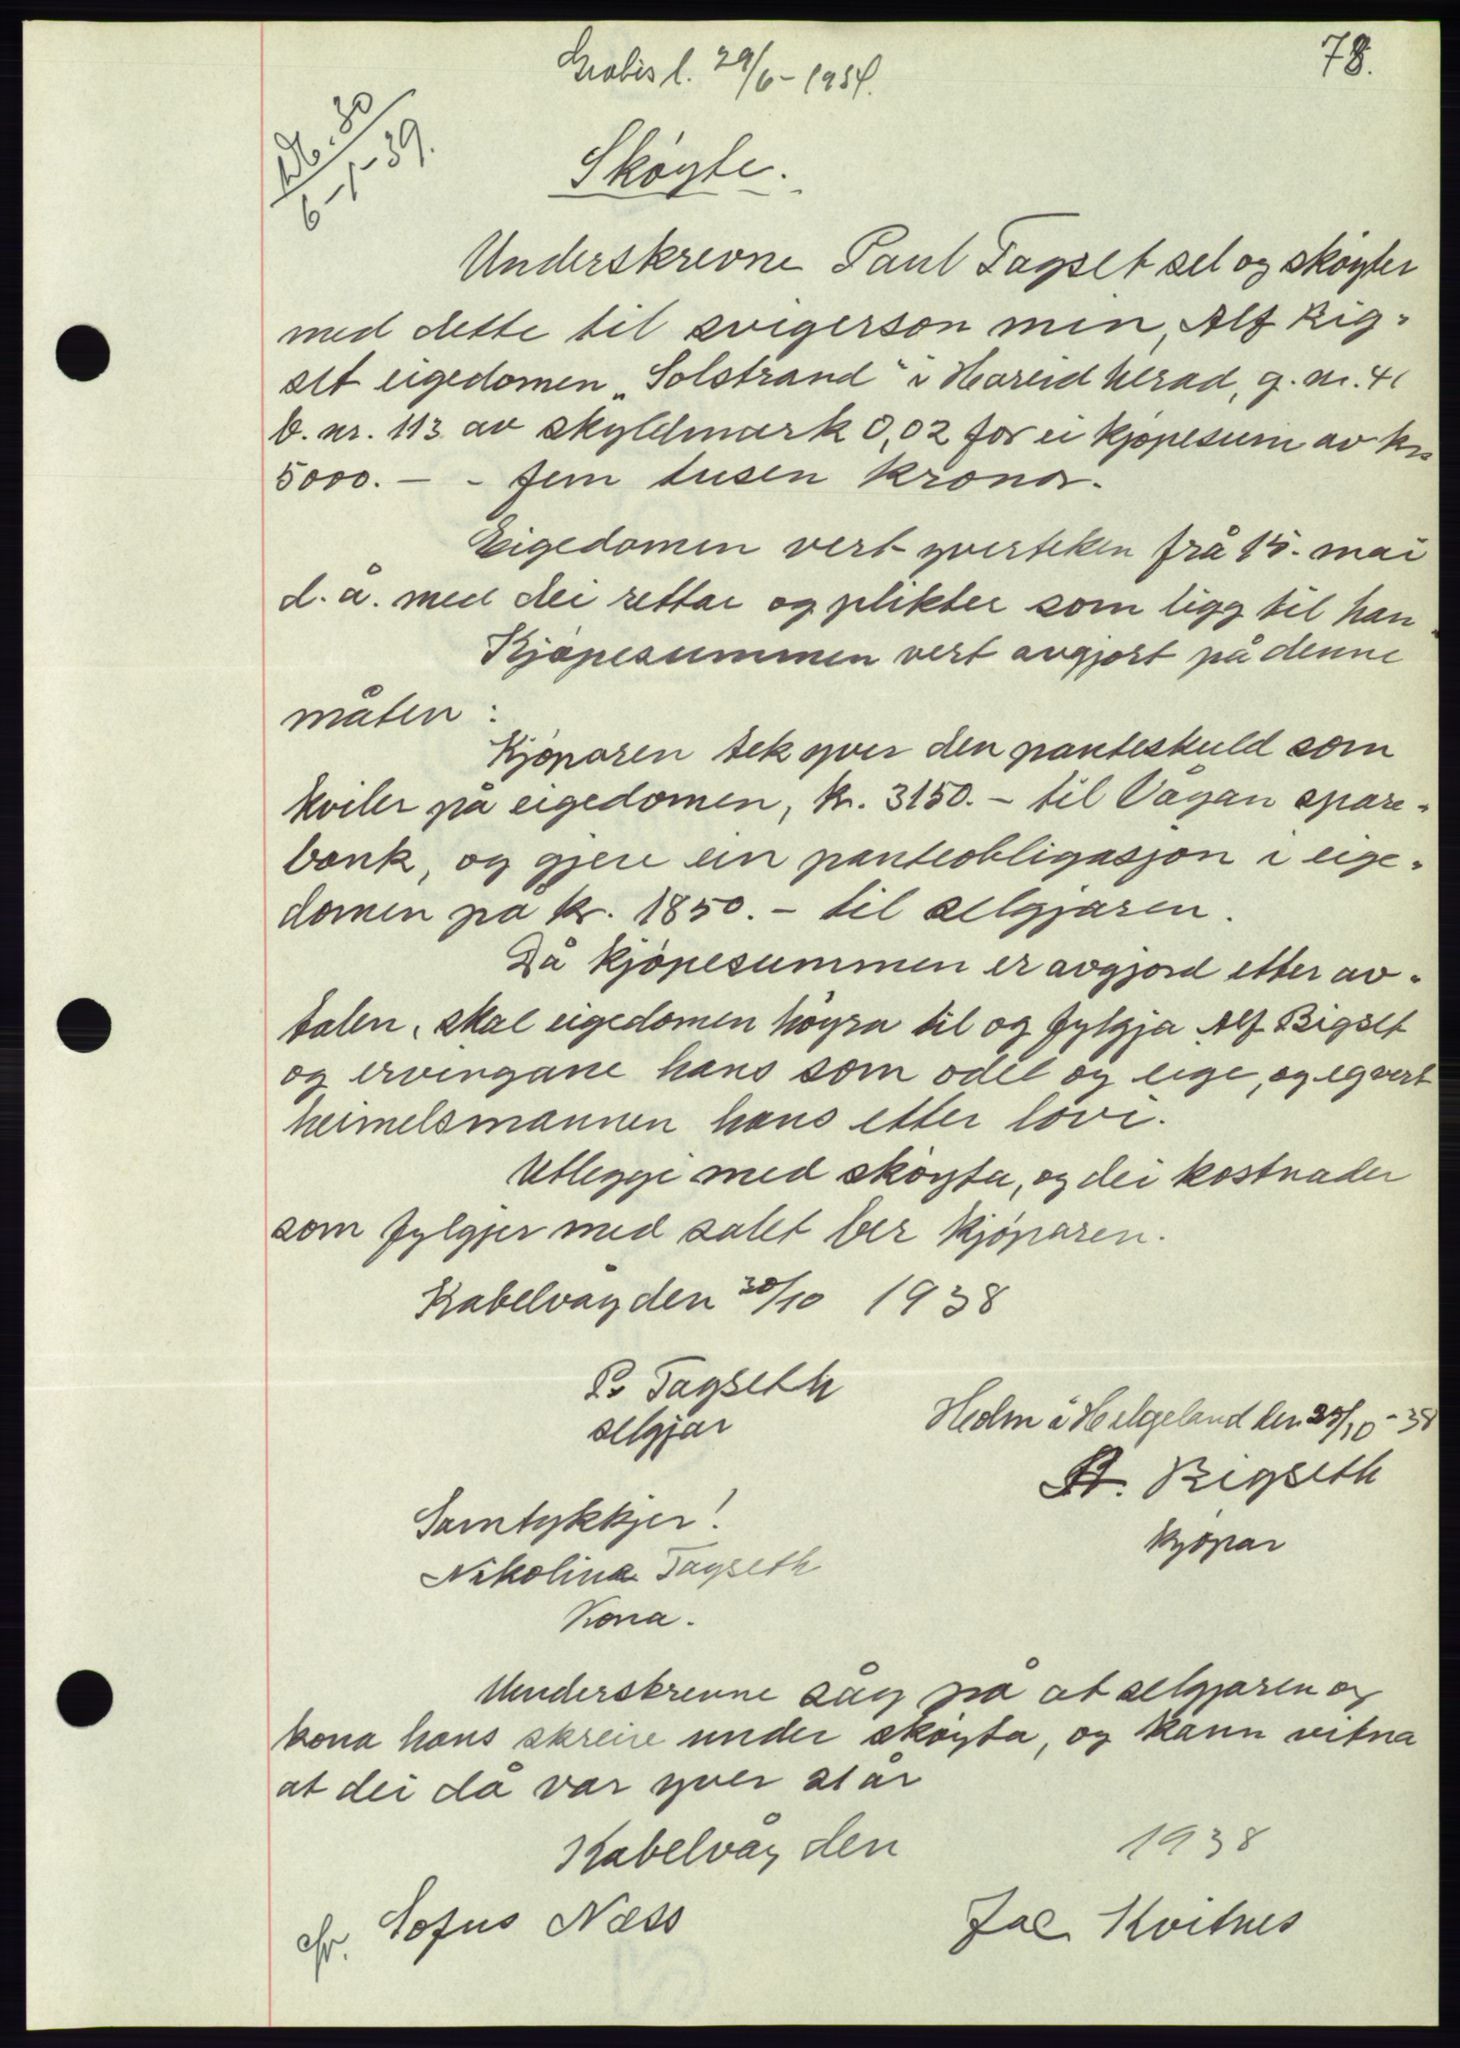 78.
29/6-1954.
Db. 30
6-1-39.
Skøyte.
Underskrevne Paul Tagset sel og skøyter
med dette til svigerson min, Alf Big-
set eigedomen „Solstrand" i Hareid herad, g. nr. 41
b. nr. 113 av skyldmark 0,02 for ei kjøpesum av kr.
5000. - - fem tusen kronor.
Eigedomen vert yverteken frå 15. mai
d. å. med dei rettar og plikter som ligg til han.
Kjøpesummen vert avgjort på denne
måten :
Kjøparen tek yver den panteskuld som
kviler på eigedomen, kr. 3150. - til Vågan spare-
bank, og gjere ein panteobligasjon i eige-
domen på kr. 1850. - til selgjaren.
Då kjøpesummen er avgjord etter av-
talen, skal eigedomen høyra til og fylgja Alf Bigset
og ervingane hans som odel og eige, og eg vert
heimelsmannen hans etter lovi.
Utleggi med skøyta, og dei kostnader
som fylgjer med salet ber kjøparen.
Kabelvåg den 30/10 1938
P. Tagseth
selgjar
Holm i Helgeland den 25/10 - 38
A. Bigseth
kjøpar
Samtykkjer!
Nikolina Tagseth
Kona.
Underskrevne såg på at selgjaren og
kona hans skreiv under skøyta, og kann vitna
at dei då var yver 21 år
Kabelvåg den 1938
Sofus Næss
Jac Kvitnes